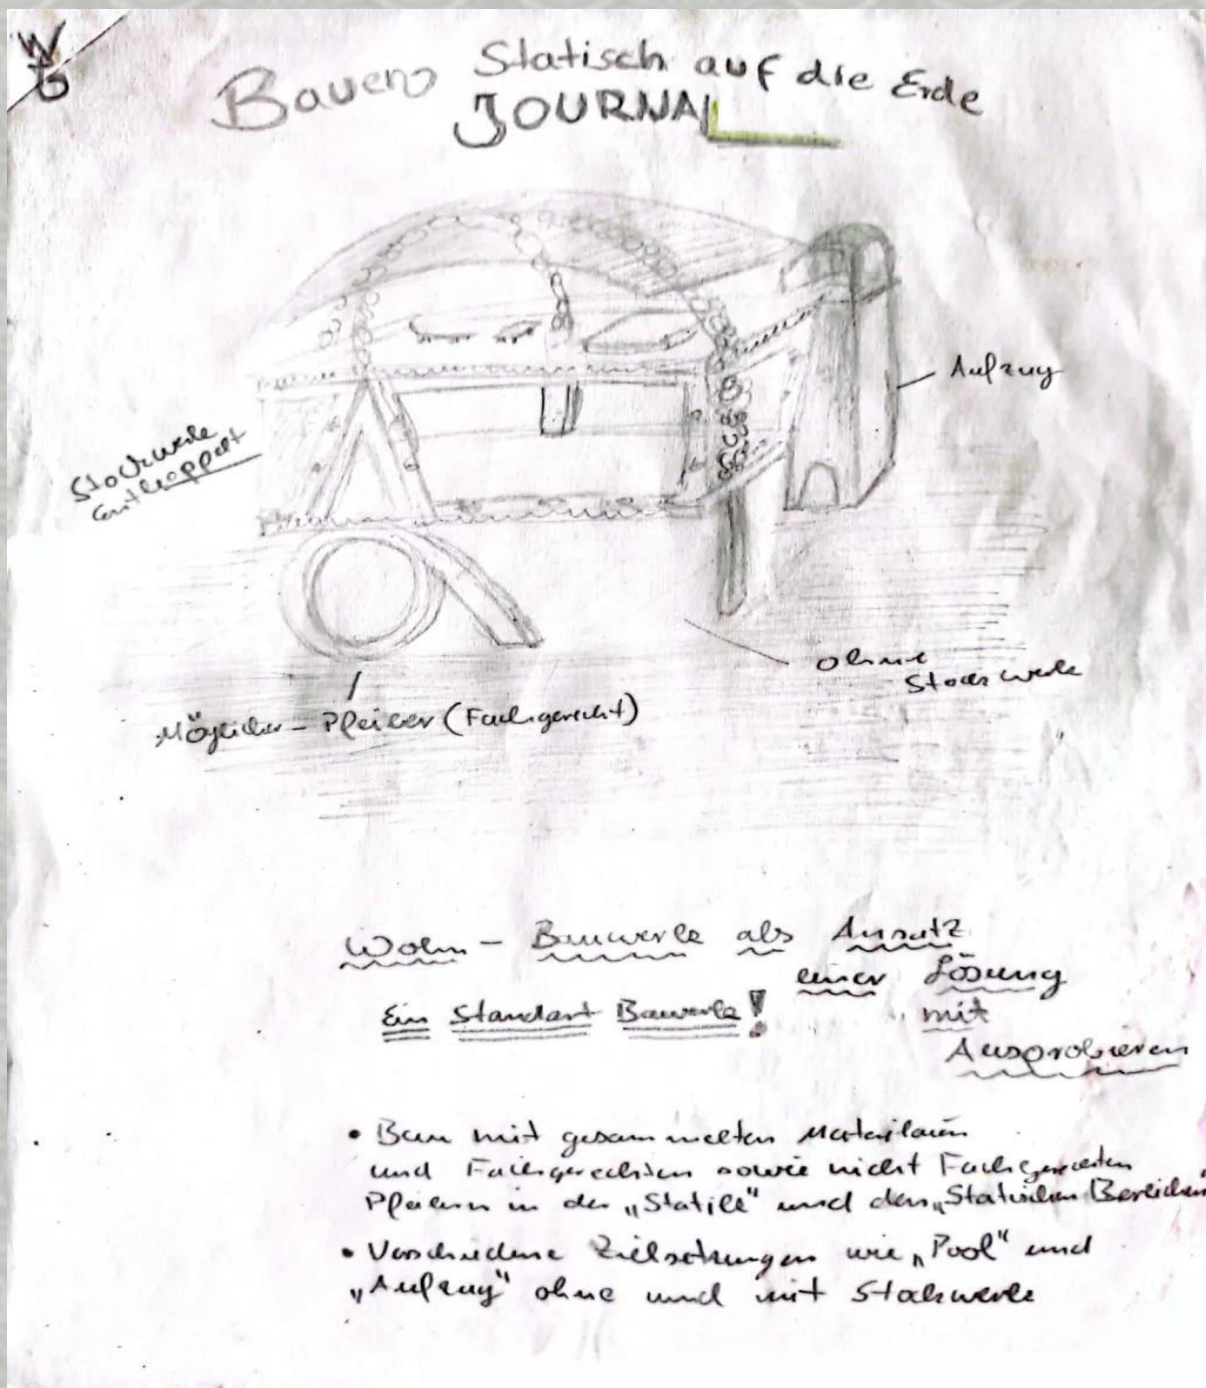 Bauen Statisch auf die Erde
JOURNAL
Aufzug
Stockwerk
entkoppelt
ohne
Stockwerk
Möglicher - Pfeiler (Fachgerecht)
Wohn - Bauwerk als Ansatz
einer Lösung
Ein Standart Bauwerk!
mit
Ausprobieren
• Bau mit gesammelten
und Fachgerechten sowie nicht Fachgerechten
Pfeilern in der „Statik“ und den „Statischen Bereichen“
• Verschiedene Zielsetzungen wie „Pool“ und
„Aufzug“ ohne und mit Stockwerk